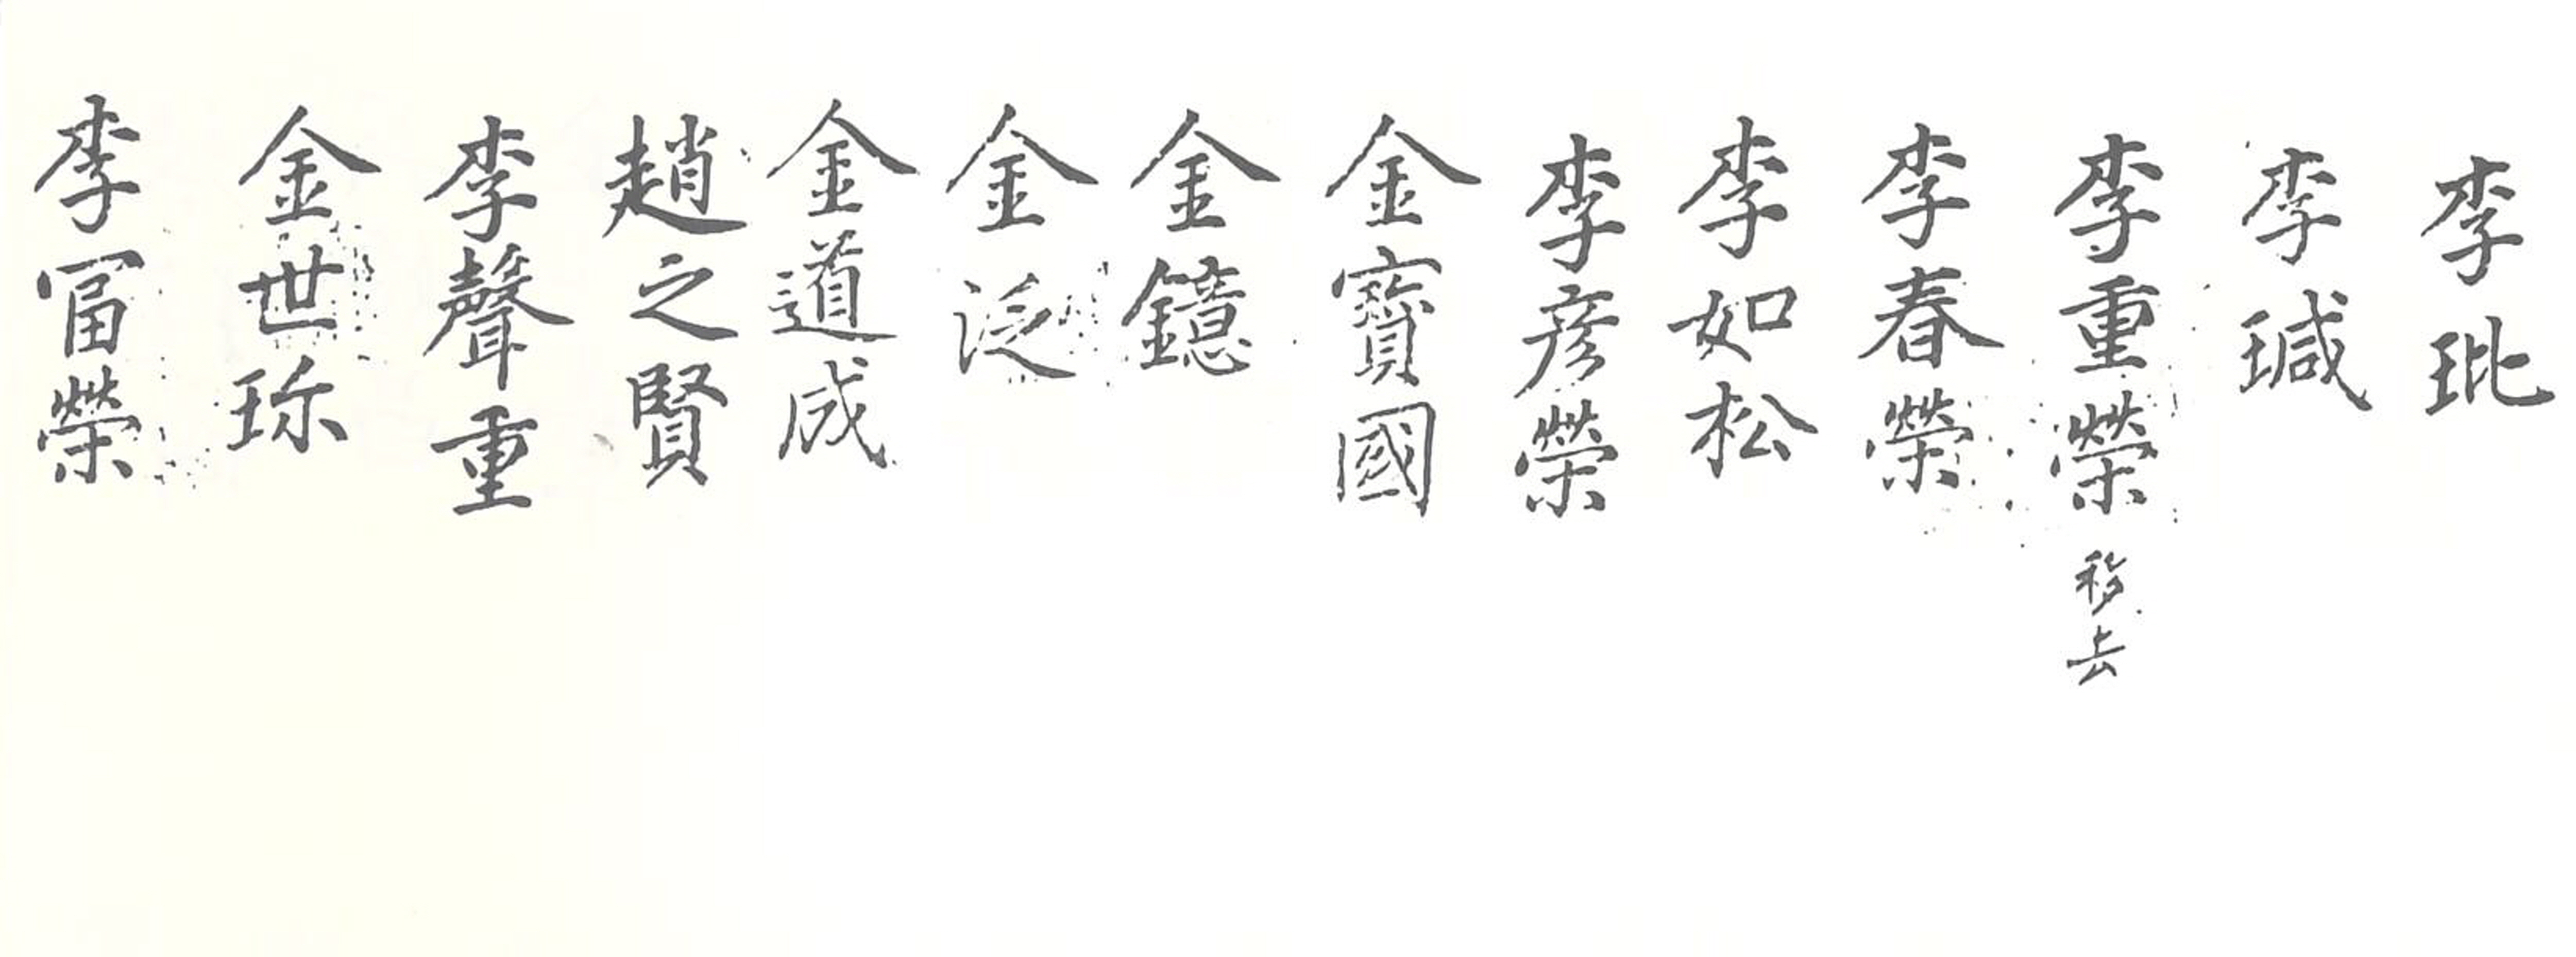 李玭
李瑊
李重榮 移去
李春榮
李如松
李彦榮
金寶國
金鐿
金泛
金道成
趙之賢
李聲重
金世珎
李冨榮